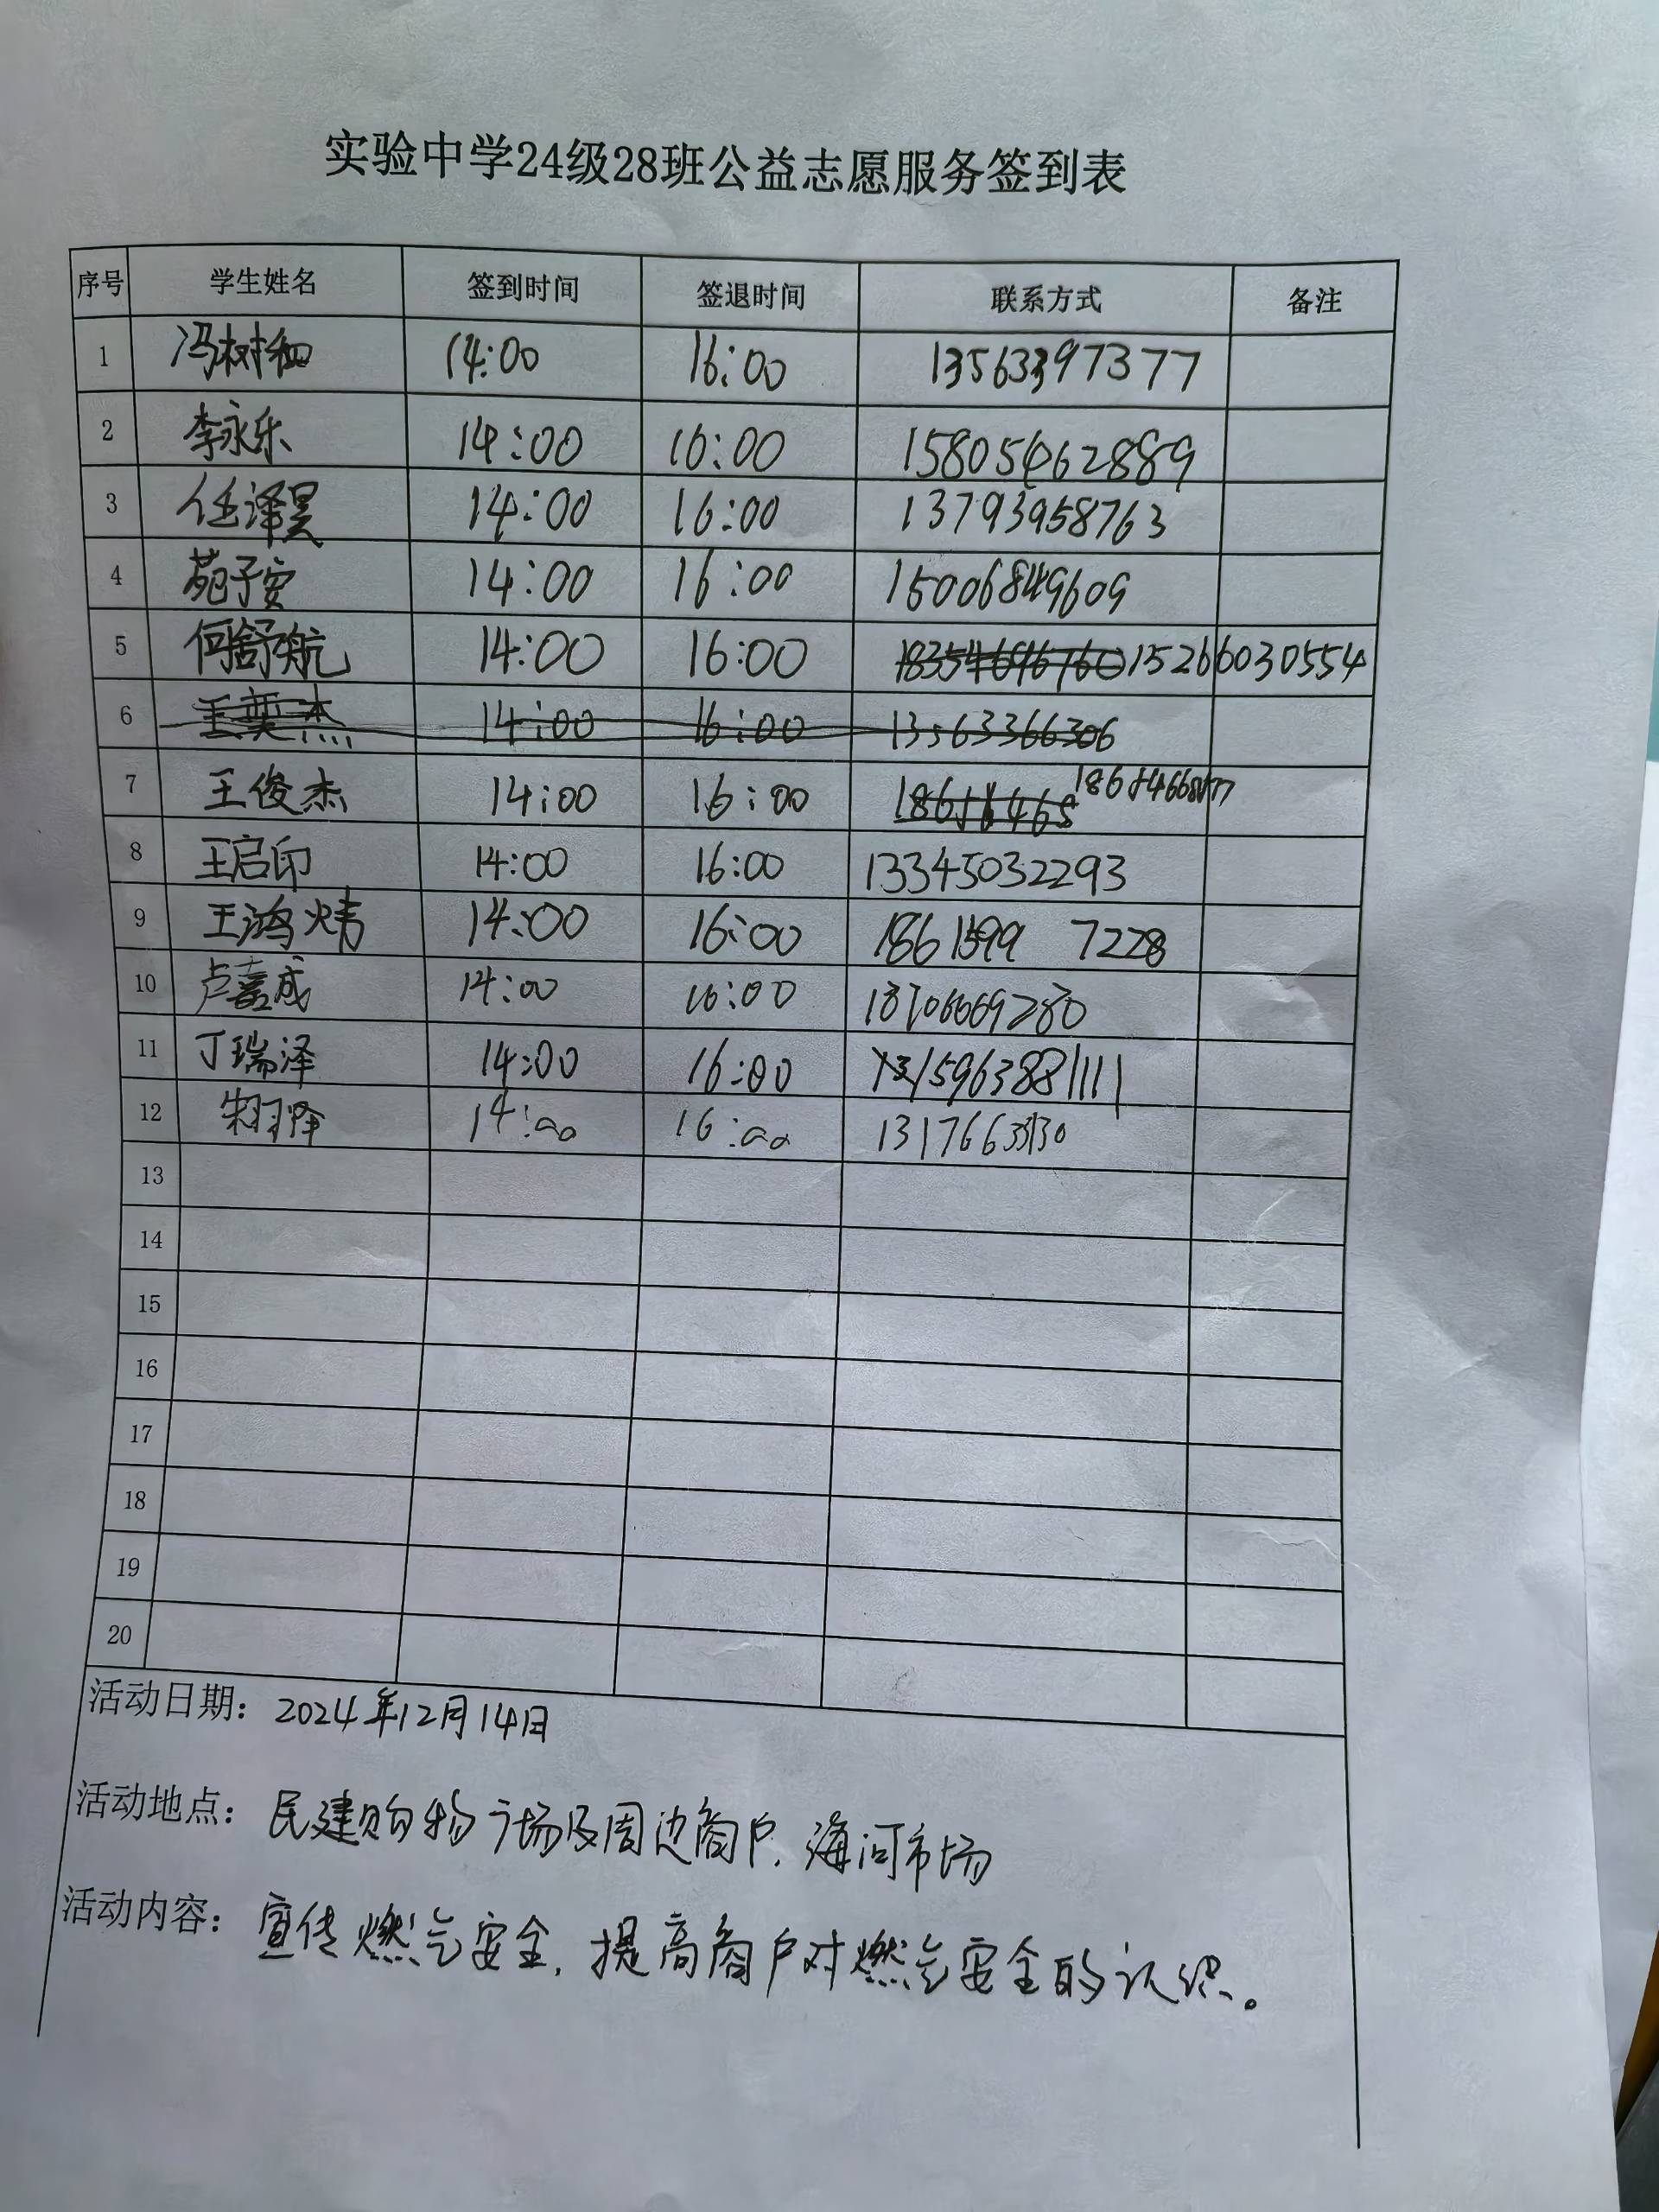 实验中学24级28班公益志愿服务签到表
序号 学生姓名 签到时间 签退时间 联系方式 备注
1 冯树和 14:00 16:00 13563397377
2 李永乐 14:00 16:00 15805462889
3 任泽昊 14:00 16:00 13793958763
4 苑子安 14:00 16:00 15006849609
5 何舒航 14:00 16:00 18354696760 15266030554
6 王奕杰 14:00 16:00 13563366306
7 王俊杰 14:00 16:00
8 王启印 14:00 16:00 13345032293
9 王鸿炜 14:00 16:00 7228
10 卢嘉成 14:00 16:00
11 丁瑞泽 14:00 16:00 15963881111
12 14:00 16:00
13
14
15
16
17
18
19
20
活动日期：2024年12月14日
活动地点：民建购物广场及周边商户，海河市场
活动内容：宣传燃气安全，提高商户对燃气安全的认识。